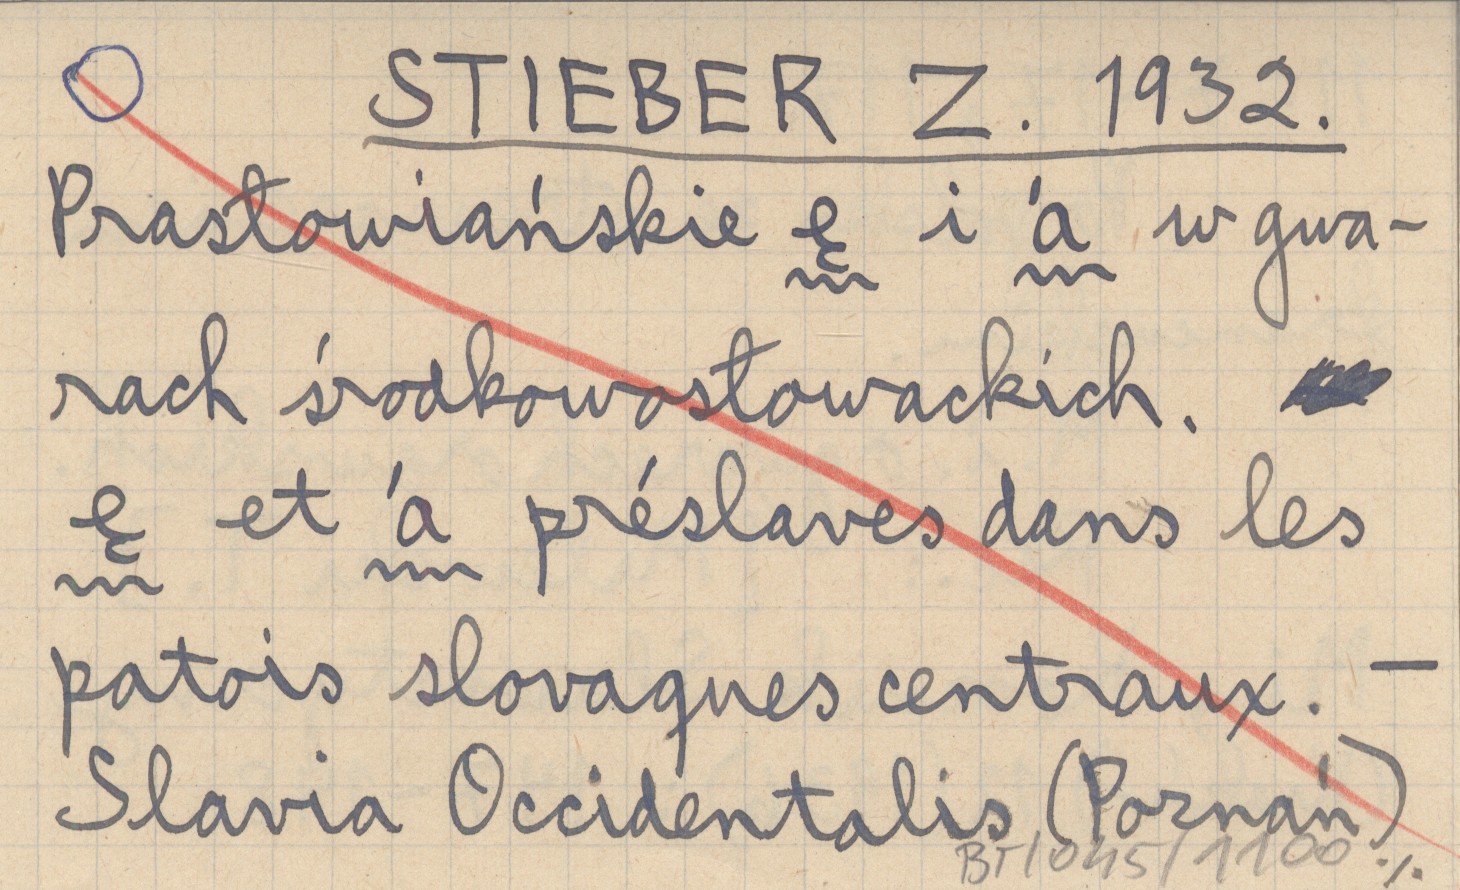 STIEBER Z. 1932.
Prasłowiańskie ę i 'a w gwa-
rach środkowosłowackich.
ę et 'a préslaves dans les
patois slovaques centraux. —
Slavia Occidentalis (Poznań)
BT/045/1100 ./.